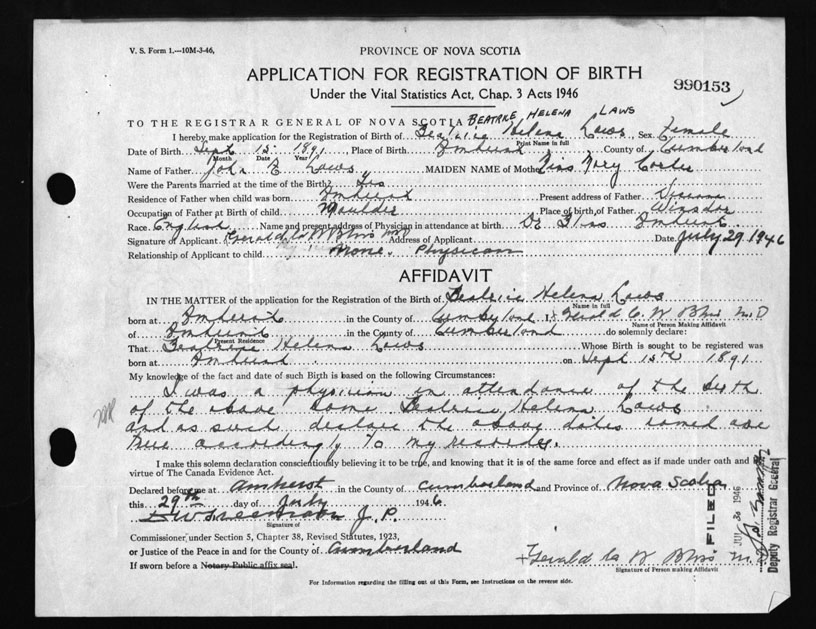 V. S. Form 1.—10M-3-46,
PROVINCE OF NOVA SCOTIA
APPLICATION FOR REGISTRATION OF BIRTH
990153
Under the Vital Statistics Act, Chap. 3 Acts 1946
BEATRICE HELENA LAWS
TO THE REGISTRAR GENERAL OF NOVA SCOTIA
I hereby make application for the Registration of Birth of Beatrice Helena Laws, Sex Female
Print Name in full
Date of Birth Sept 15 1891 Place of Birth Amherst County of Cumberland
Month Date Year
Name of Father John E Laws MAIDEN NAME of Mother
Were the Parents married at the time of the Birth? Yes
Residence of Father when child was born Amherst Present address of Father
Occupation of Father at Birth of child Moulder Place of birth of Father Windsor
Race English Name and present address of Physician in attendance at birth Dr Bliss Amherst
Signature of Applicant Gerald C W Bliss MD Address of Applicant Date July 29 1946
Relationship of Applicant to child None. Physician
AFFIDAVIT
IN THE MATTER of the application for the Registration of the Birth of Beatrice Helena Laws
Name in full
born at Amherst in the County of Cumberland I, Gerald C. W Bliss M.D
Name of Person Making Affidavit
of Amherst in the County of Cumberland do solemnly declare:
Present Residence
That Beatrice Helena Laws Whose Birth is sought to be registered was
born at Amherst on Sept 15th 1891
My knowledge of the fact and date of such Birth is based on the following Circumstances:
I was a physician in attendance of the birth
of the above Beatrice Helena Laws
and as such declare the above dates named are
true accordingly to my records.
I make this solemn declaration conscientiously believing it to be true, and knowing that it is of the same force and effect as if made under oath and by
virtue of The Canada Evidence Act.
Declared before me at Amherst in the County of Cumberland and Province of Nova Scotia
this 29th day of July 1946
J. P.
Signature of
Commissioner under Section 5, Chapter 38, Revised Statutes, 1923,
or Justice of the Peace in and for the County of Cumberland
If sworn before a Notary Public affix seal.
Gerald C W Bliss M.D
Signature of Person making Affidavit
FILED
JUL 30 1946
Deputy Registrar General
For Information regarding the filling out of this Form, see Instructions on the reverse side.